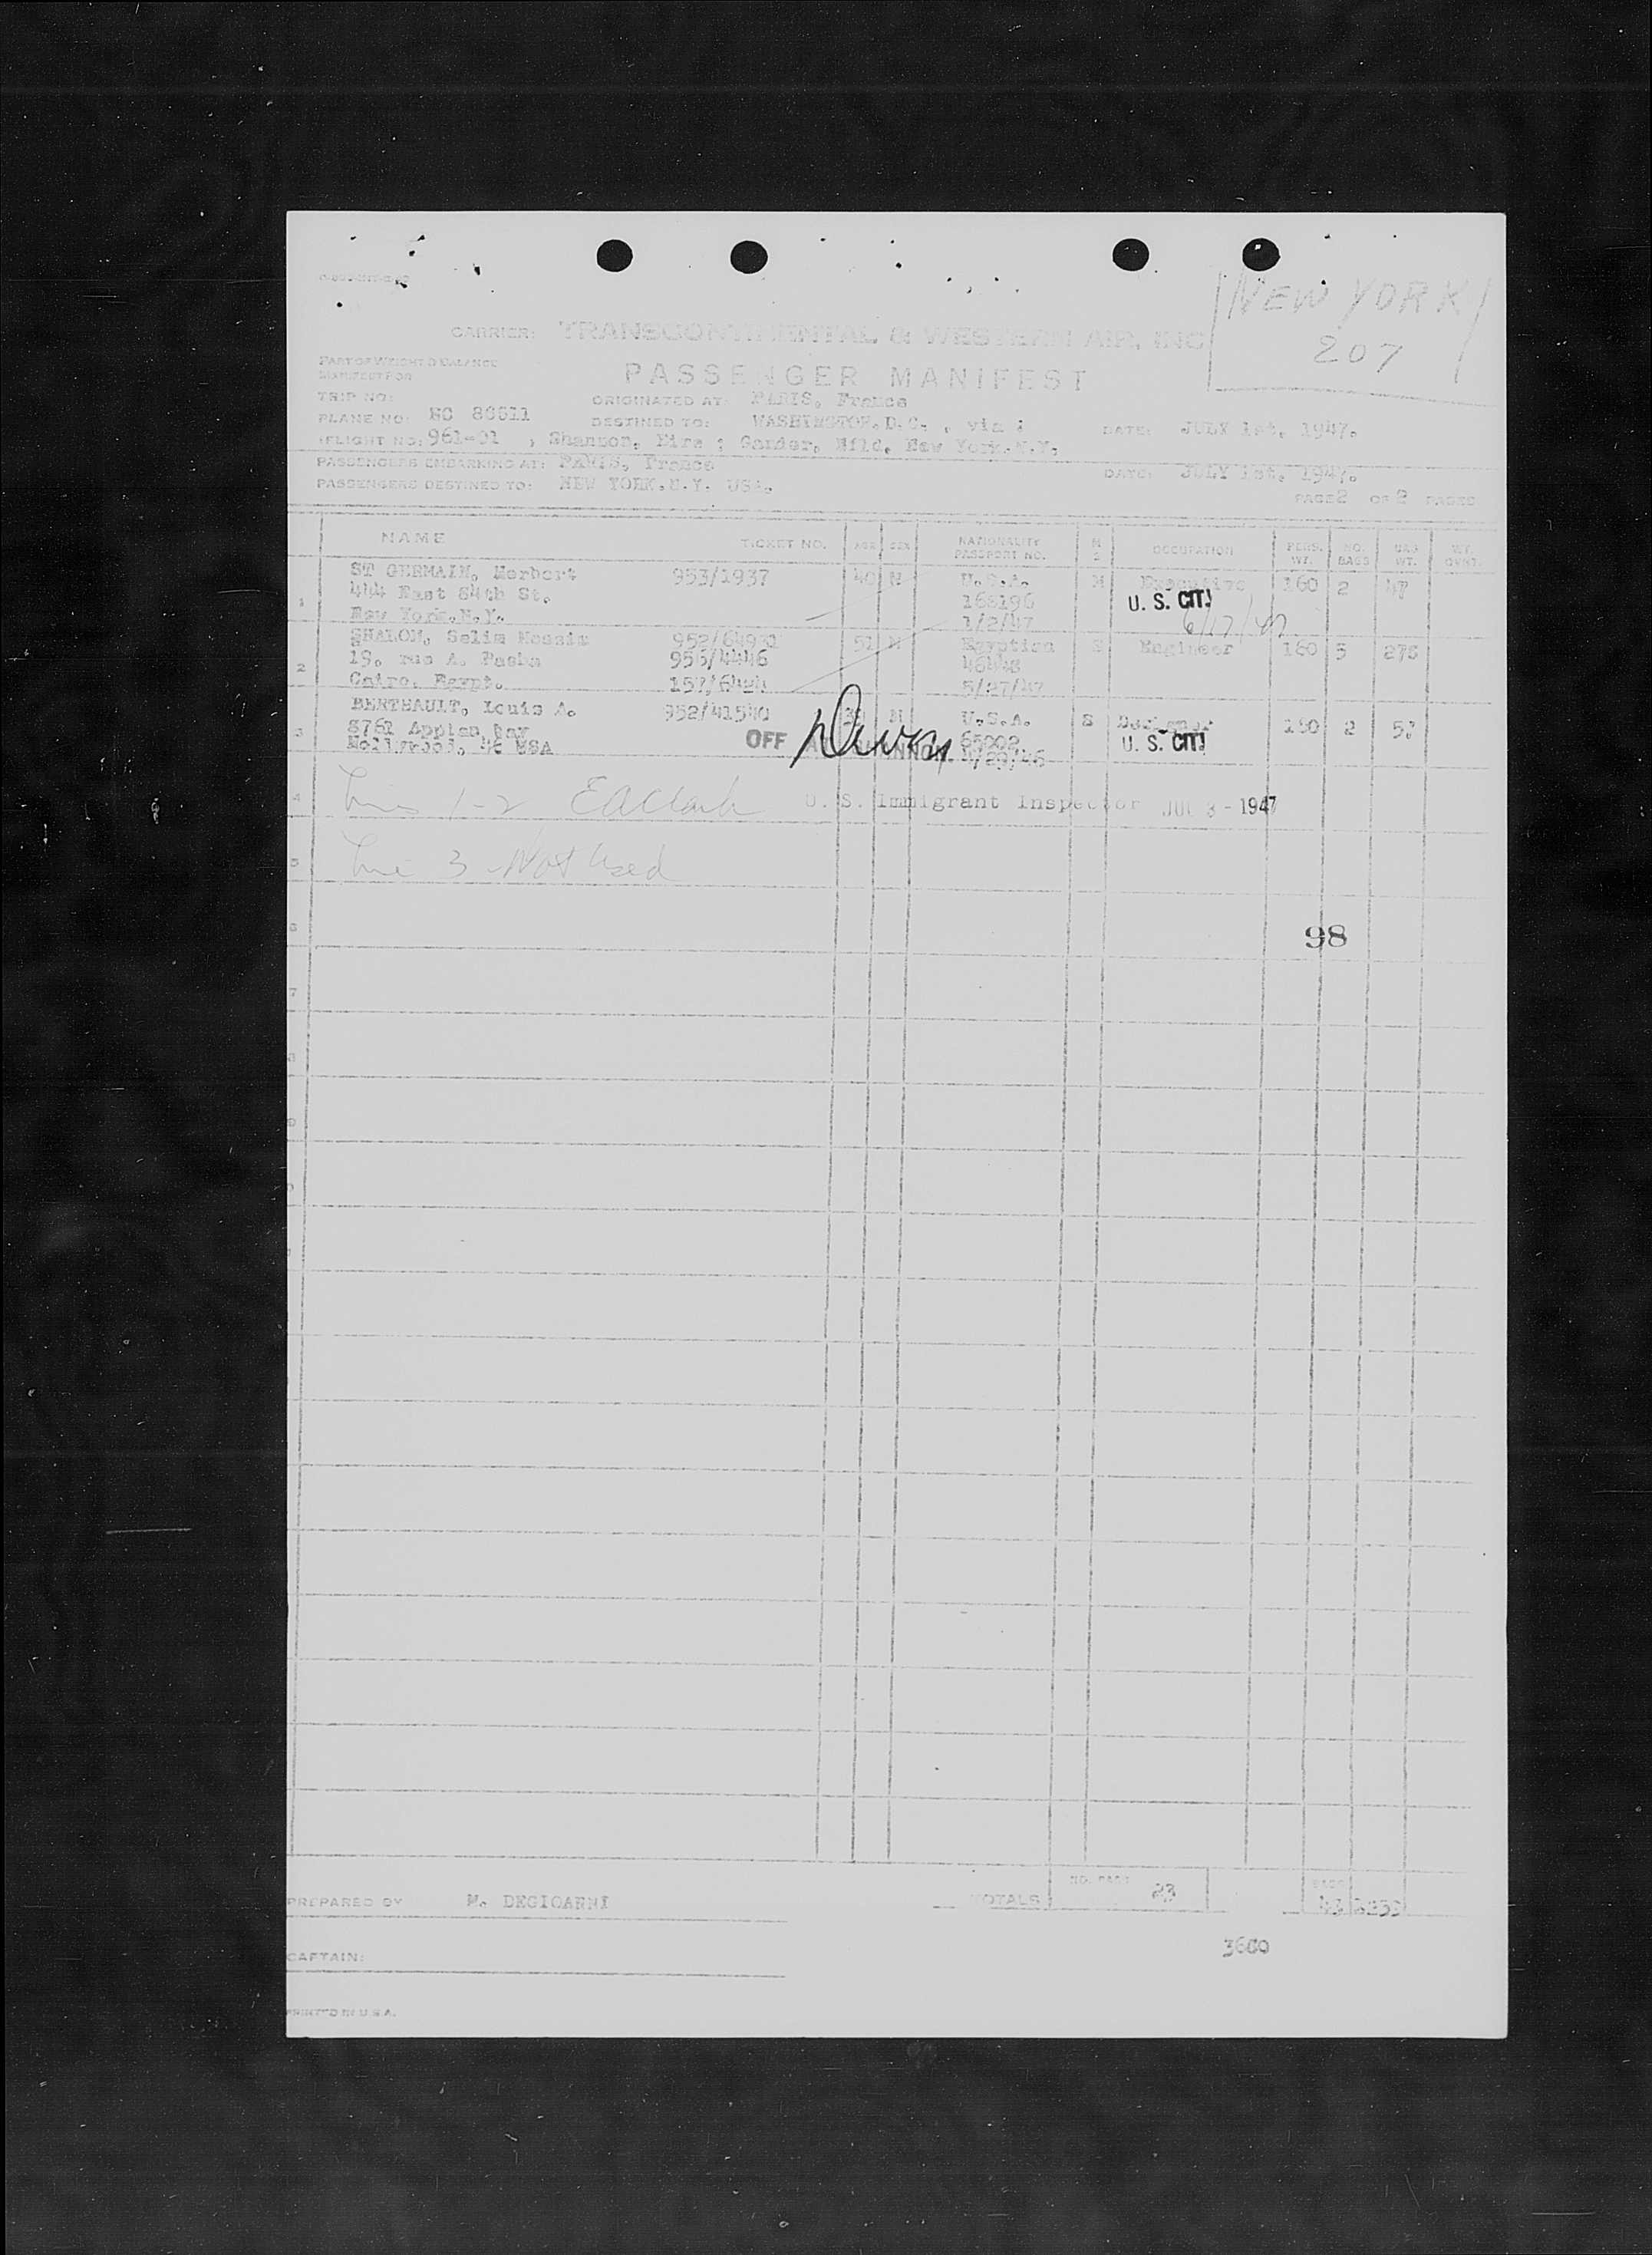 NEW YORK
207
CARRIER: TRANSCONTINENTAL & WESTERN AIR, INC
PART OF WEIGHT & BALANCE
MANIFEST FOR
PASSENGER MANIFEST
TRIP NO:
ORIGINATED AT: PARIS, France
PLANE NO: NC 86511 DESTINED TO: WASHINGTON.D.C. , via : DATE: JULY 1st, 1947.
FLIGHT NO: 961-01 , Shannon, Eire ; Gander, Nfld, New York.N.Y.
PASSENGERS EMBARKING AT: PARIS, France DATE: JULY 1st, 1947.
PASSENGERS DESTINED TO: NEW YORK.N.Y. USA.
PAGE 2 OF 2 PAGES
NAME TICKET NO. AGE SEX NATIONALITY PASSPORT NO. M S OCCUPATION PERS. WT. NO. BAGS BAG WT. WT. OVHT.
ST GERMAIN, Herbert 953/1937 40 M U.S.A. M Executive 160 2 47
444 East 84th St. 168196 U. S. CIT.
1 New York.N.Y. 1/2/47 6/17/47
SHALOM, Selim 952/64931 51 M Egyptian S Engineer 180 5 278
2 19, rue A. Pasha 953/4446 46448
Cairo, Egypt. 157/6424 5/27/47
BERTHAULT, Louis A. 952/41540 M U.S.A. S Designer 180 2 53
3 8761 Appian Way OFF 65002 U. S. CIT.
Hollywood, 46 USA AT SHANNON 4/29/46
4 Lines 1-2 EAClark U. S. Immigrant Inspector JUL 3 - 1947
5 Line 3 - Not Used
6
98
7
8
9
PREPARED BY M. DEGIOANNI TOTALS NO. PASS. 23 BAGS
CAPTAIN: 3680
PRINTED IN U.S.A.